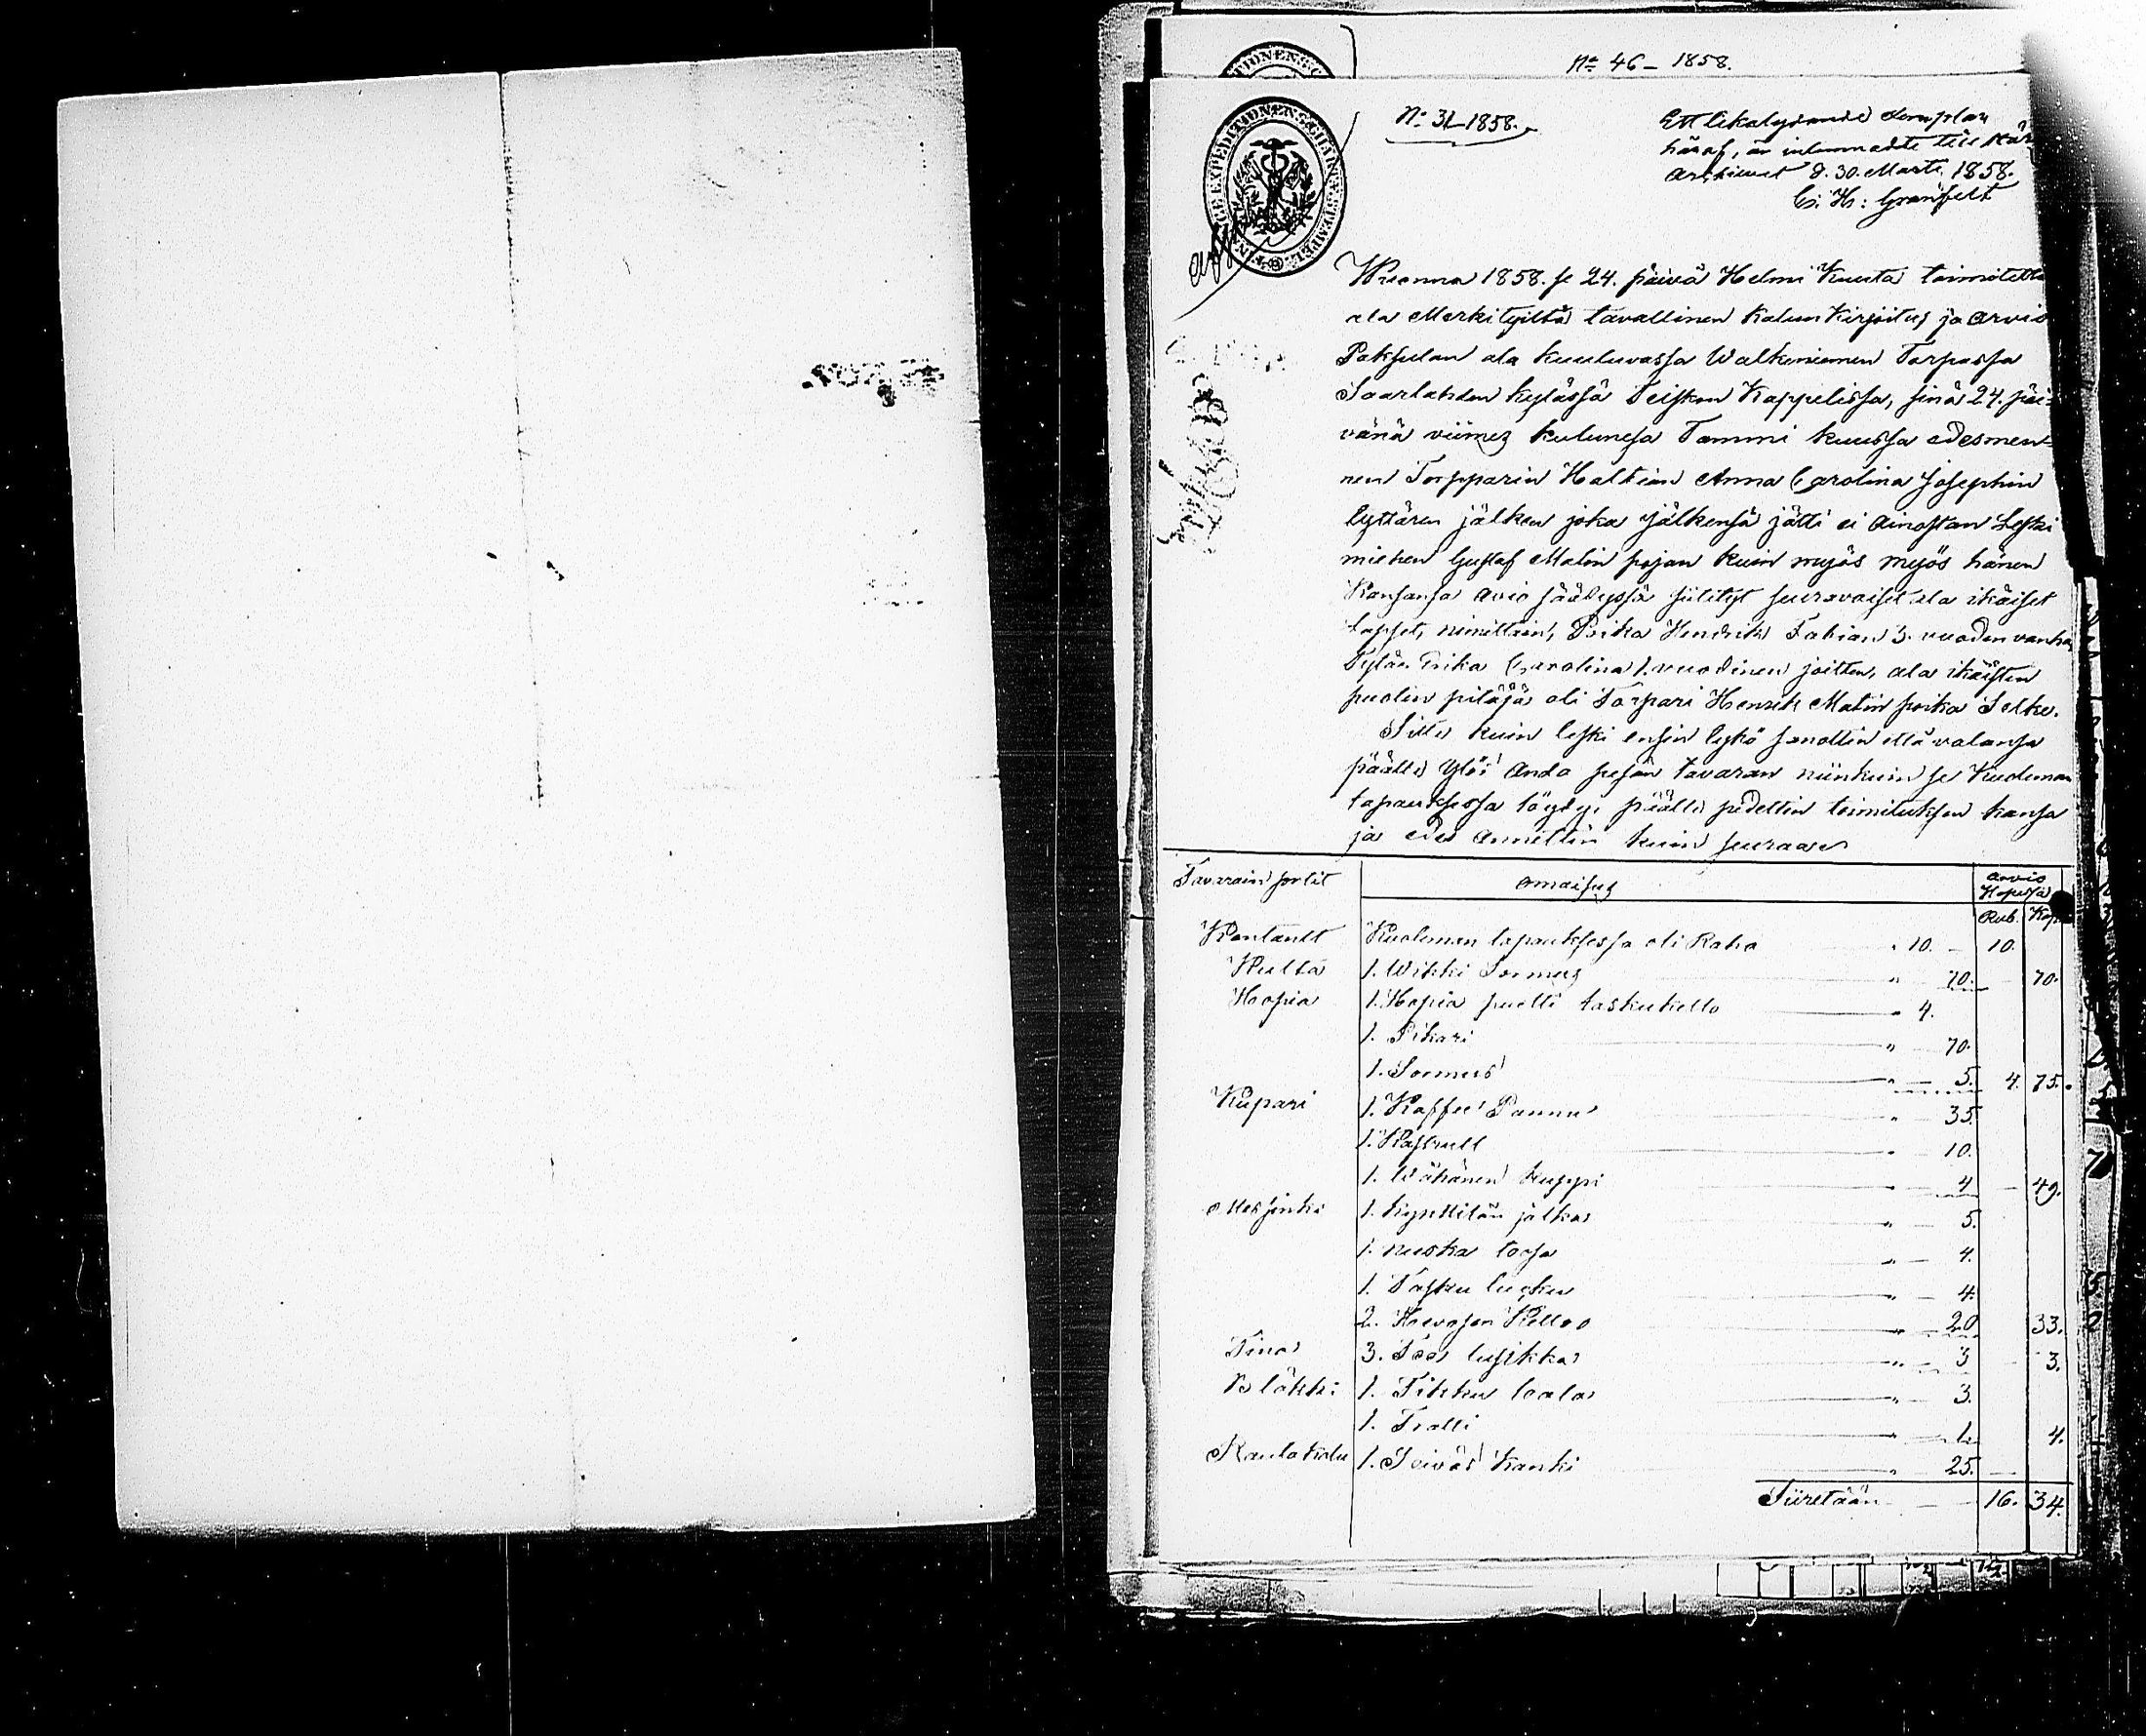 No 46 - 1858.
No 31 - 1858.
Ett likalydande Exemplar
häraf, är inlemnadt till
Archivet d. 30. Marti 1858.
C. H: Granfelt
Wuonna 1858. se 24. päivä Helmi Kuuta toimitettu
ala Merkityiltä tavallinen Kalun Kirjoitus ja arvio
Paksulan ala kuuluvassa Walkeniemen Torpassa
Saarlahden kylässä Teiskon Kappelissa, sinä 24. päi-
vänä viimez kulunesa Tammi kuussa edesmen-
nen Torpparin Haltian Anna Carolina Josephin
tyttären jälken joka jälkensä jätti ei ainostan Leski
miehen Gustaf Matin pojan kuin myös myös hänen
Kansansa avio säädyssä siitetyt seuravaiset ala ikäiset
lapset, nimittäin, Poika Hendrik Fabian 3. vuoden vanha,
Tytär Erika Carolina 1. vuodinen joitten, ala ikäisten
puolen pitäjä oli Torpari Henrik Matin poika Selke.
Sitte kuin leski ensin lykö sanottin että valansa
päälle Ylös anda pesän tavaran niinkuin se Kuoleman
tapauksessa löydyi päälle pidettin toimituksen kansa
ja edes annettin kuin seuraava
Tavarain sortit omaisus arvio Hopeasa
Rub. Kop
Kontantt Kuoleman tapauksessa oli Raha " 10. - 10.
Kulta 1. Wikki Sormus " 70. 70.
Hoopia 1. Hopia puolti taskukello " 4.
1. Pikari " 70.
1. Sormus " 5. 4. 75.
Kupari 1. Kaffee Pannu " 35.
1. Kastrull " 10.
1. Wähänen kuppi " 4 49.
Messinki 1. kynttilän jalka " 5.
1. nuska toosa " 4.
1. Tasku lucku " 4.
2. Hevosen Kelloo " 20 33.
Tina 3. Tee lusikkaa " 3 3.
Bläkki 1. Tikku loola " 3.
1. Tratti " 1. 4.
Rautakalu 1. Seiväs Kanki " 25.
Siiretään 16. 34.